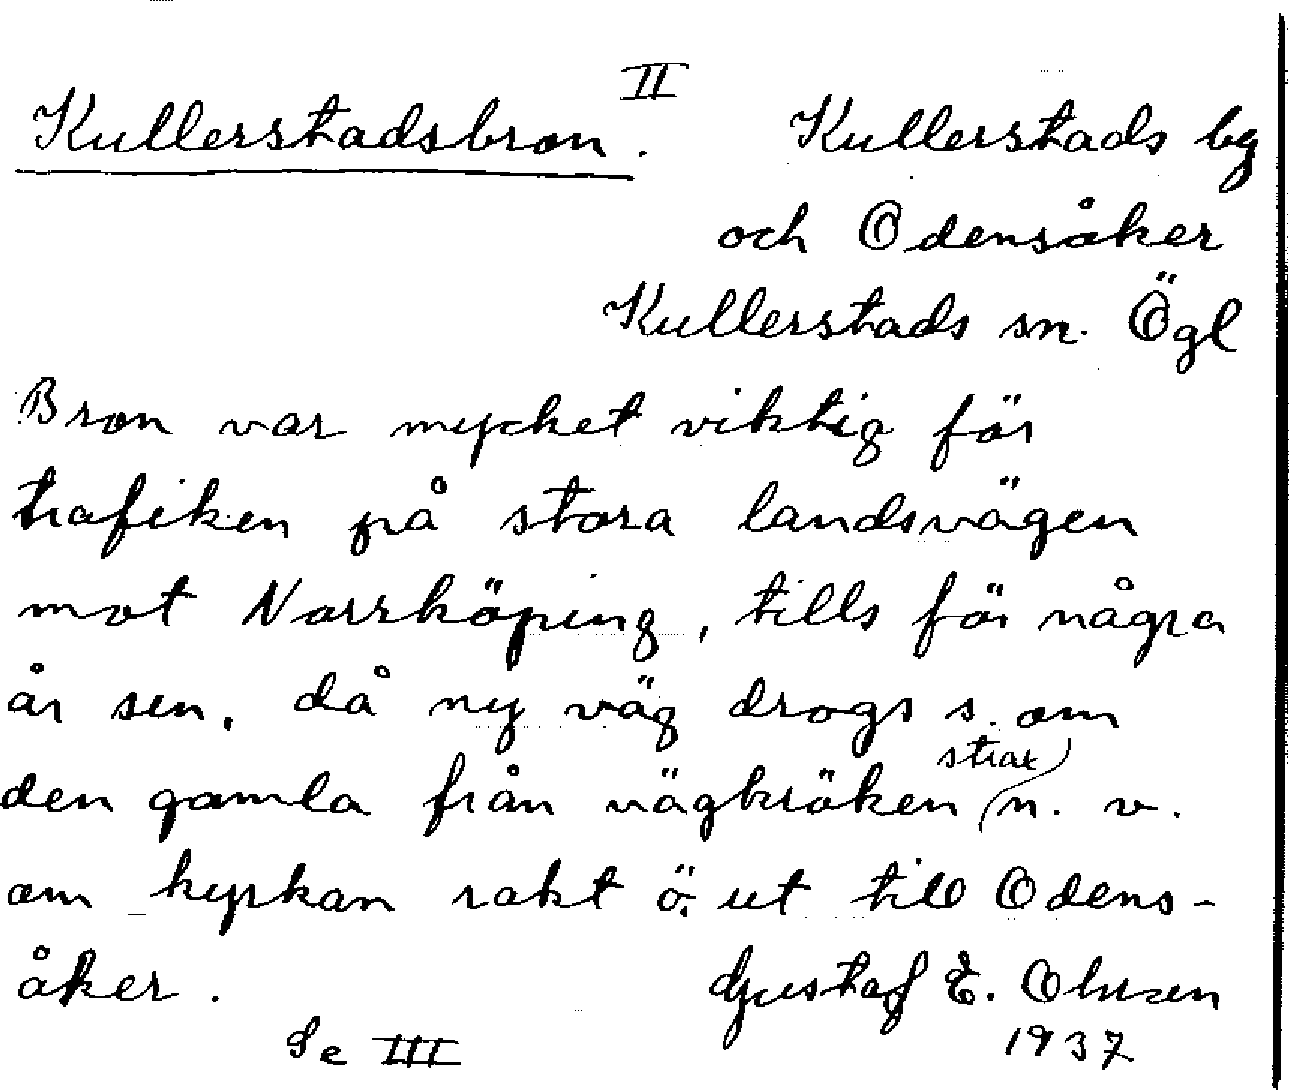 II
Kullerstadsbron. Kullerstads by
och Odensåker
Kullerstads sn. Ögl
Bron var mycket viktig för
trafiken på stora landsvägen
mot Norrköping, tills för några
år sen, då ny väg drogs s. om
den gamla från vägkröken strax n. v.
om kyrkan rakt ö. ut till Odens-
åker. Gustaf E. Olsson
Se III 1937